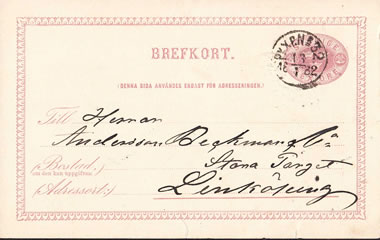 BREFKORT.
(DENNA SIDA ANVÄNDES ENDAST FÖR ADRESSERINGEN.)
Till Herrar
Andersson Beckman & Co
(Bostad:)
om den kan uppgifvas
Stora Torget
(Adressort:) Linköping